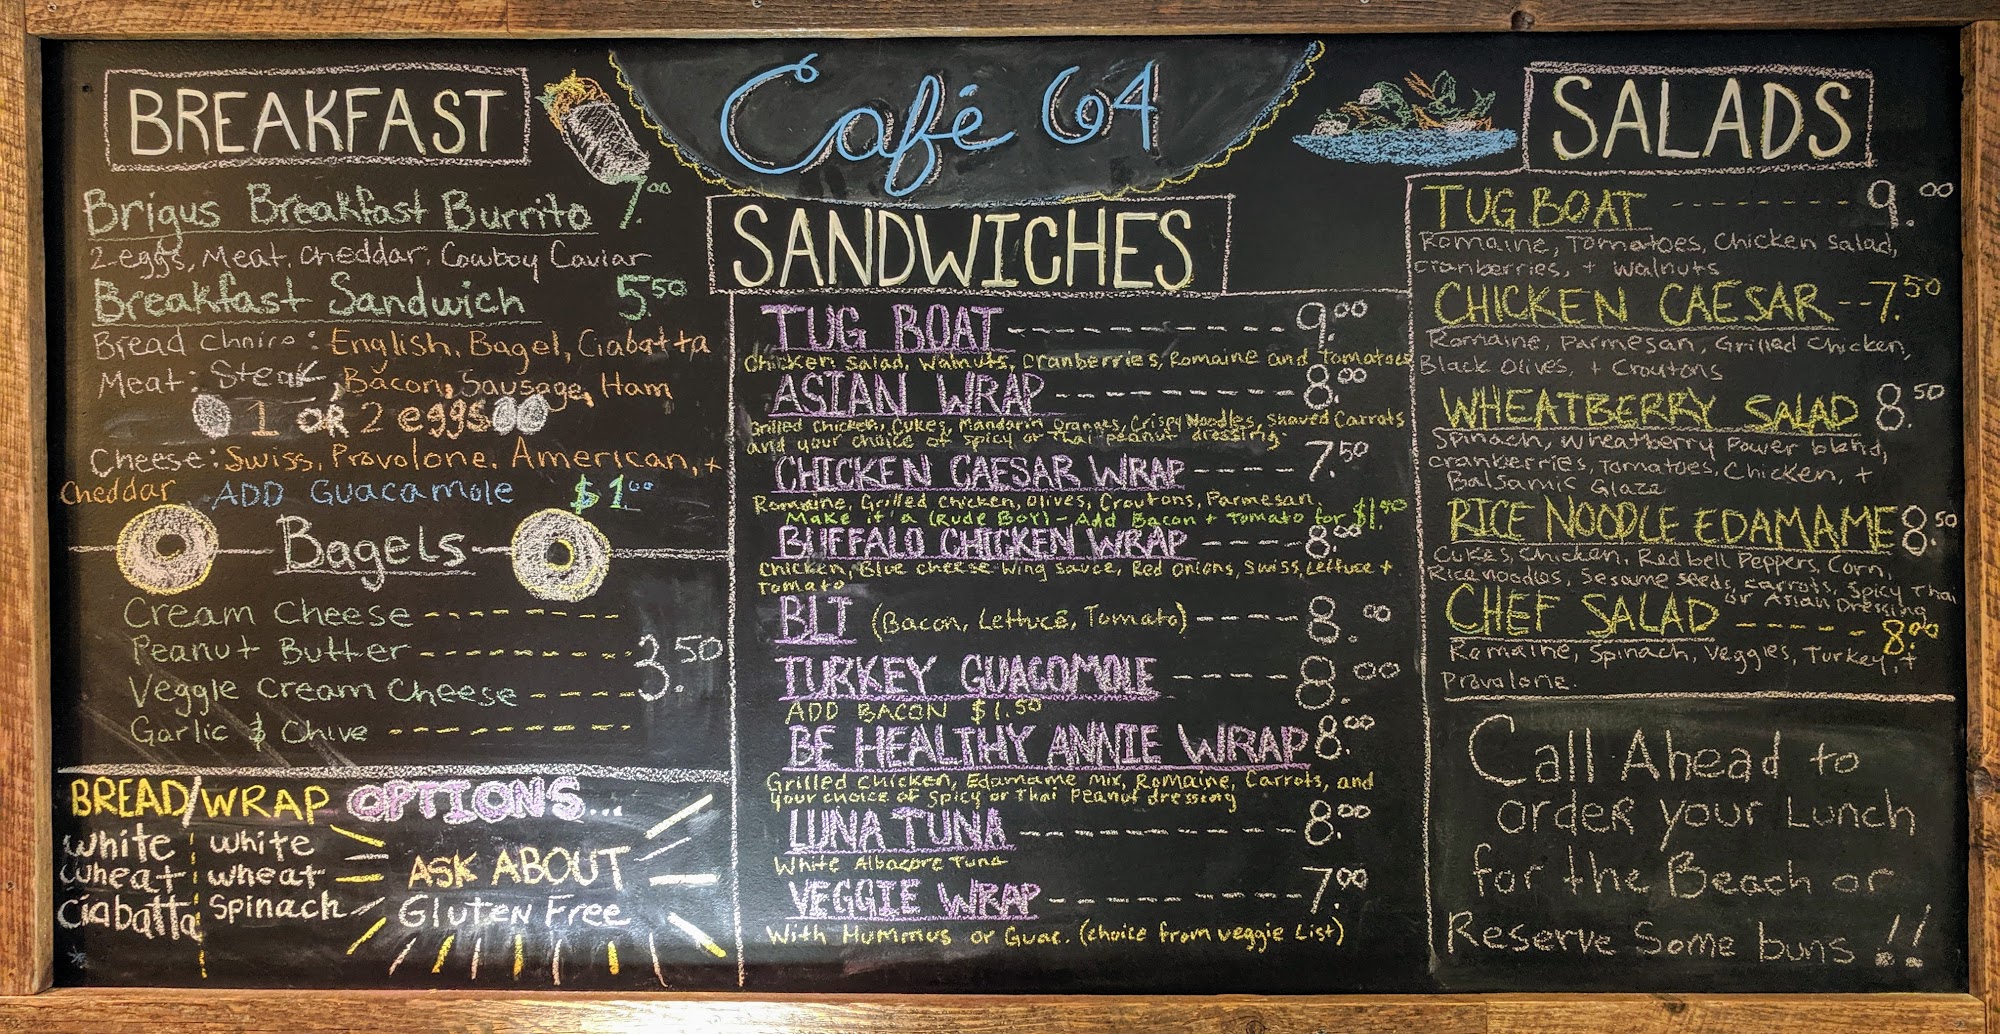 Café 64
BREAKFAST
Brigus Breakfast Burrito 7.00
2 eggs, Meat, Cheddar, Cowboy Caviar
Breakfast Sandwich 5.50
Bread Choice: English, Bagel, Ciabatta
Meat: Steak, Bacon, Sausage, Ham
1 OR 2 eggs
Cheese: Swiss, Provolone, American, +
Cheddar ADD Guacamole $1.00
Bagels
Cream Cheese
Peanut Butter
Veggie Cream Cheese
Garlic & Chive
3.50
BREAD/WRAP OPTIONS...
White White
Wheat Wheat
Ciabatta Spinach
ASK ABOUT
Gluten Free
SANDWICHES
TUG BOAT 9.00
Chicken Salad, Walnuts, Cranberries, Romaine and Tomatoes
ASIAN WRAP 8.00
Grilled Chicken, Cukes, Mandarin Oranges, Crispy Noodles, Shaved Carrots
and your choice of Spicy or Thai Peanut dressing
CHICKEN CAESAR WRAP 7.50
Romaine, Grilled Chicken, Olives, Croutons, Parmesan,
Make it a (Rude Boy) - Add Bacon + Tomato for $1.50
BUFFALO CHICKEN WRAP 8.00
Chicken, Blue Cheese Wing Sauce, Red Onions, Swiss, Lettuce +
Tomato
BLT (Bacon, Lettuce, Tomato) 8.00
TURKEY GUACOMOLE 8.00
ADD BACON $1.50
BE HEALTHY ANNIE WRAP 8.00
Grilled Chicken, Edamame mix, Romaine, Carrots, and
your choice of Spicy or Thai Peanut dressing
LUNA TUNA 8.00
White Albacore Tuna
VEGGIE WRAP 7.00
With Hummus or Guac. (choice from veggie List)
SALADS
TUG BOAT 9.00
Romaine, Tomatoes, Chicken Salad,
Cranberries, + Walnuts
CHICKEN CAESAR 7.50
Romaine, Parmesan, Grilled Chicken,
Black Olives, + Croutons
WHEATBERRY SALAD 8.50
Spinach, Wheatberry Power blend,
Cranberries, Tomatoes, Chicken, +
Balsamic Glaze
RICE NOODLE EDAMAME 8.50
Cukes, Chicken, Red bell Peppers, Corn,
Rice noodles, Sesame seeds, Carrots, Spicy Thai
or Asian Dressing
CHEF SALAD 8.00
Romaine, Spinach, Veggies, Turkey, +
Provalone.
Call Ahead to
order your Lunch
for the Beach or
Reserve Some buns!!